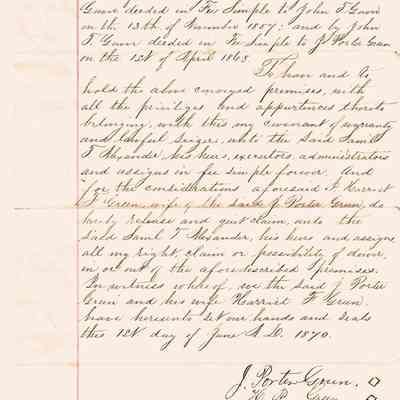 Green deeded in Fee Simple to John T Green
on the 13th of November 1857: and by John
T. Green deeded in Fee Simple to J Porter Green
on the 1st of April 1863
To have and to
hold the above conveyed premises, with
all the privileges and appurtances thereto
belonging, with this my covenant of warranty
and lawful seizen, unto the said Saml
T Alexander his heirs, executors, administrators
and assigns in fee simple forever. And
for the considerations aforesaid I Harriet
F Green, wife of the said J Porter Green, do
hereby release and quit claim, unto the
said Saml T Alexander, his heirs and assigns
all my right, claim or possibility of dower,
in or out of the afore described premises.
In witness whereof, we the said J Porter
Green and his wife Harriet F Green
have hereunto set our hands and seals
this 1st day of June A.D. 1870.
J. Porter Green.
Green